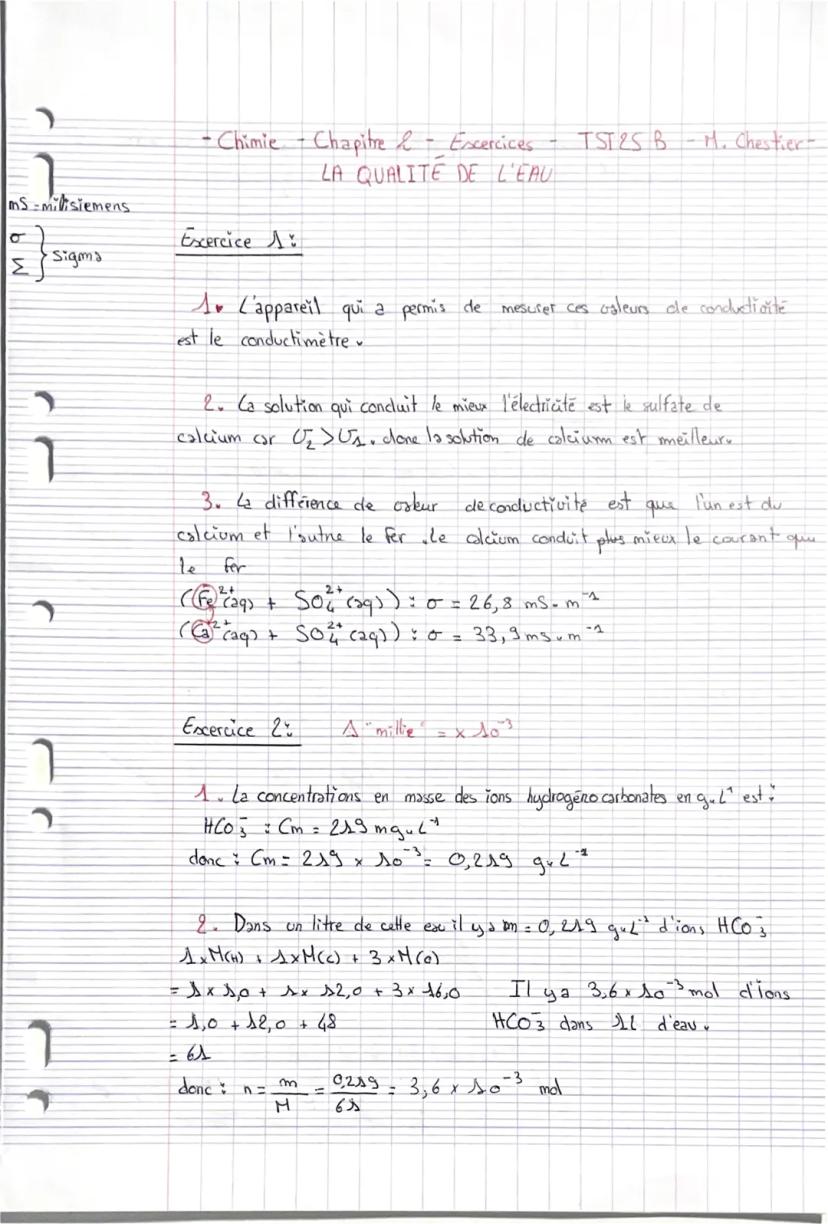 - Chimie - Chapitre 2 - Excercices - TST2S B - M. Chestier -
LA QUALITÉ DE L'EAU
mS = milisiemens
σ
Σ } Sigma
Excercice 1 :
1. L'appareil qui a permis de mesurer ces valeurs de conductivité
est le conductimètre.
2. La solution qui conduit le mieux l'électricité est le sulfate de
calcium car σ₂ > σ₁. donc la solution de calciumm est meilleur.
3. La différence de valeur de conductivité est que l'un est du
calcium et l'autre le fer. Le calcium conduit plus mieux le courant que
le fer
(Fe²⁺(aq) + SO₄²⁺(aq)) : σ = 26,8 mS.m⁻¹
(Ca²⁺(aq) + SO₄²⁺(aq)) : σ = 33,9 ms.m⁻¹
Excercice 2 : 1 "millie" = x 10⁻³
1. La concentrations en masse des ions hydrogénocarbonates en g.L⁻¹ est :
HCO₃⁻ : Cm = 219 mg.L⁻¹
donc : Cm = 219 x 10⁻³ = 0,219 g.L⁻¹
2. Dans un litre de cette eau il y a m = 0,219 g.L⁻¹ d'ions HCO₃⁻
1 x M(H) + 1 x M(C) + 3 x M(O)
= 1 x 1,0 + 1 x 12,0 + 3 x 16,0
= 1,0 + 12,0 + 48
= 61
Il y a 3,6 x 10⁻³ mol d'ions
HCO₃⁻ dans 1L d'eau.
donc : n = m/M = 0,219/61 = 3,6 x 10⁻³ mol